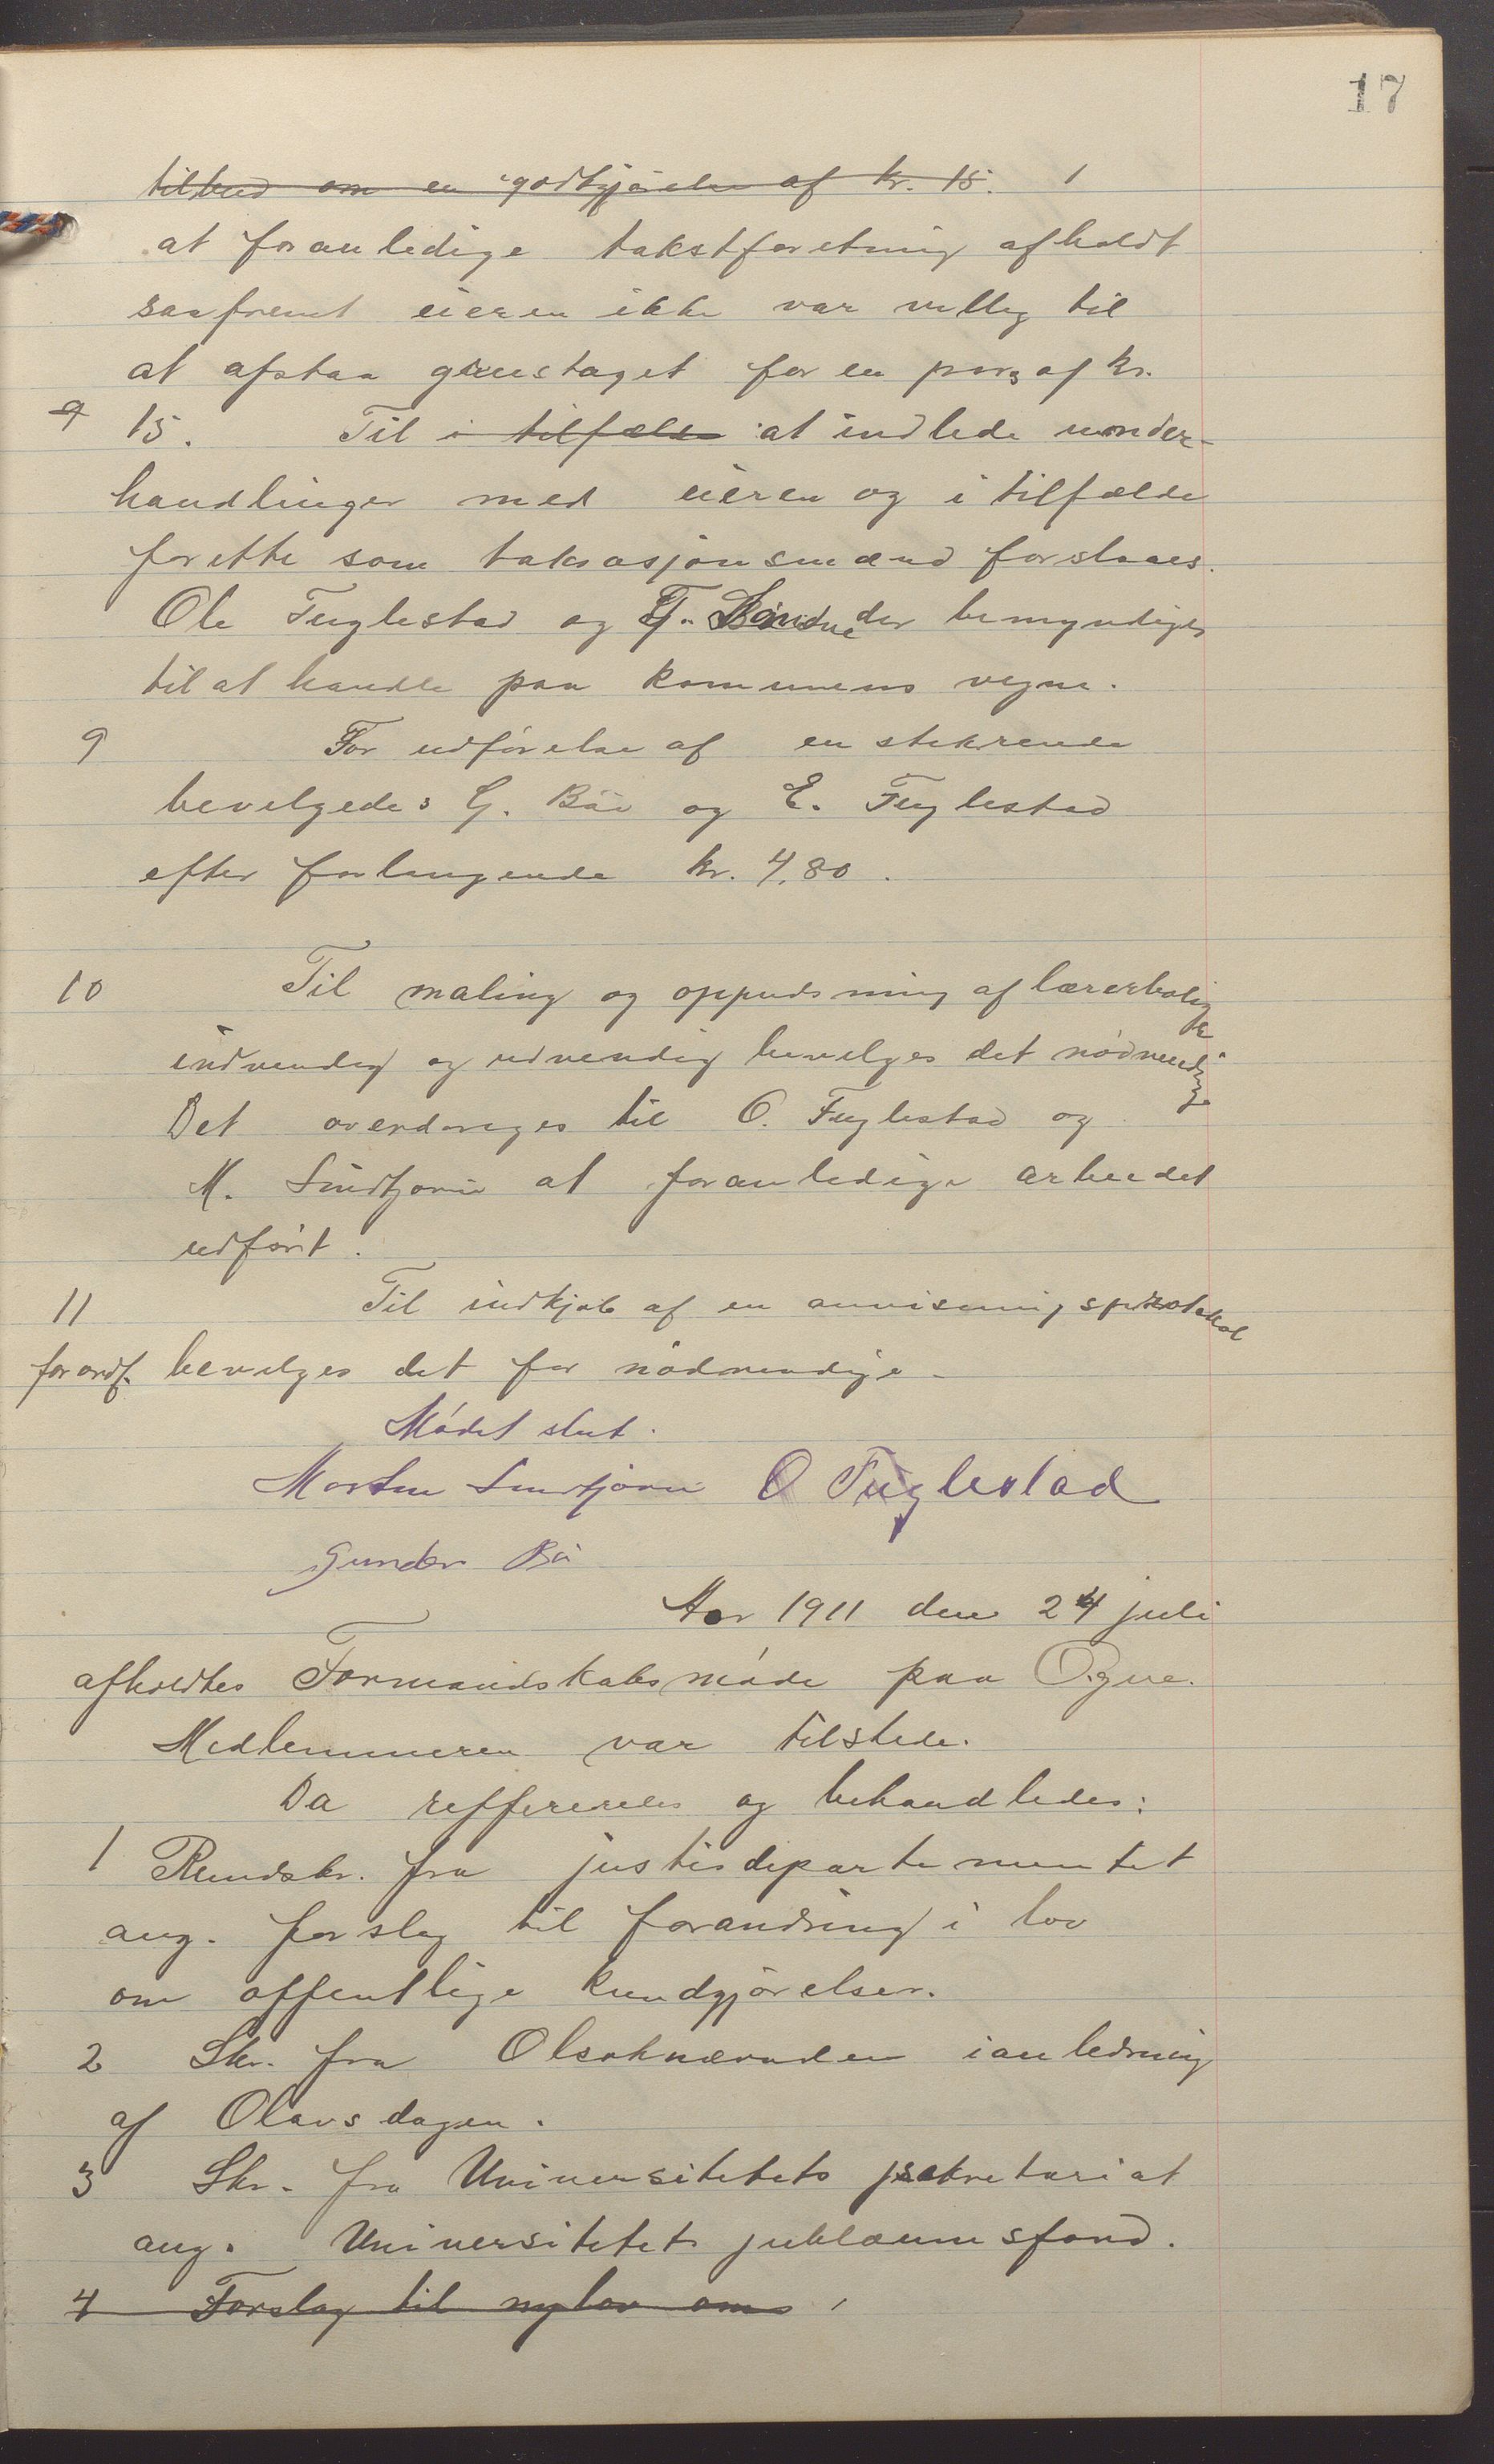 17
tilbud om en godtgjörelse af kr. 15.
at foranledige takstforetning afholdt
saafremt eieren ikke var villig til
at afstaa grustaget for en pris af kr.
9 15. Til i tilfælde at indlede under-
handlinger med eieren og i tilfælde
forette som taksasjonsmænd forslaaes.
Ole Fuglestad og der bemyndiges
til at handle paa kommunens vegne.
9 For udförelse af en stekrende
bevilgedes G. Bö og E. Fuglestad
efter forlangende kr. 4,80.
10 Til maling og oppudsning af lærerbolig
indvendig og udvendig bevilges det nödvendige
Det overdrages til O. Fuglestad og
M. Sirdtjörn at foranledige arbeidet
udfört.
11 Til indkjöb af en anvisningsprotokol
for ordf. bevilges det for nödvendige
Mödet slut.
Morten Sirdtjörn O Fuglestad
Gunder Bö
Aar 1911 den 24 juli
afholdtes Formandskabsmöde paa Ogne.
Medlemmeren var tilstede.
Da reffereredes og behandledes:
1 Rundskr. fra justisdepartementet
ang. forslag til forandring i lov
om offentlige kundgjörelser.
2 Skr. fra Olsoknævnden ianledning
af Olavsdagen.
3 Skr. fra Universitetets sekretariat
ang. Universitetets jubilæumsfond.
4 Forslag til ny lov om